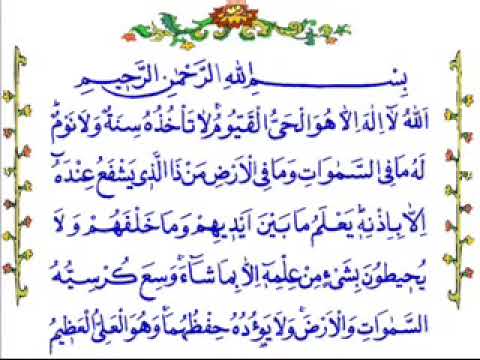 بِسْمِ اللهِ الرَّحْمٰنِ الرَّحِيمِ
اَللهُ لَا اِلٰهَ اِلَّا هُوَ الْحَيُّ الْقَيُّومُ لَا تَأْخُذُهُ سِنَةٌ وَلَا نَوْمٌ
لَهُ مَا فِي السَّمٰوَاتِ وَمَا فِي الْاَرْضِ مَنْ ذَا الَّذِي يَشْفَعُ عِنْدَهُ
اِلَّا بِاِذْنِهِ يَعْلَمُ مَا بَيْنَ اَيْدِيهِمْ وَمَا خَلْفَهُمْ وَلَا
يُحِيطُونَ بِشَيْءٍ مِنْ عِلْمِهِ اِلَّا بِمَا شَاءَ وَسِعَ كُرْسِيُّهُ
السَّمٰوَاتِ وَالْاَرْضَ وَلَا يَؤُدُهُ حِفْظُهُمَا وَهُوَ الْعَلِيُّ الْعَظِيمُ